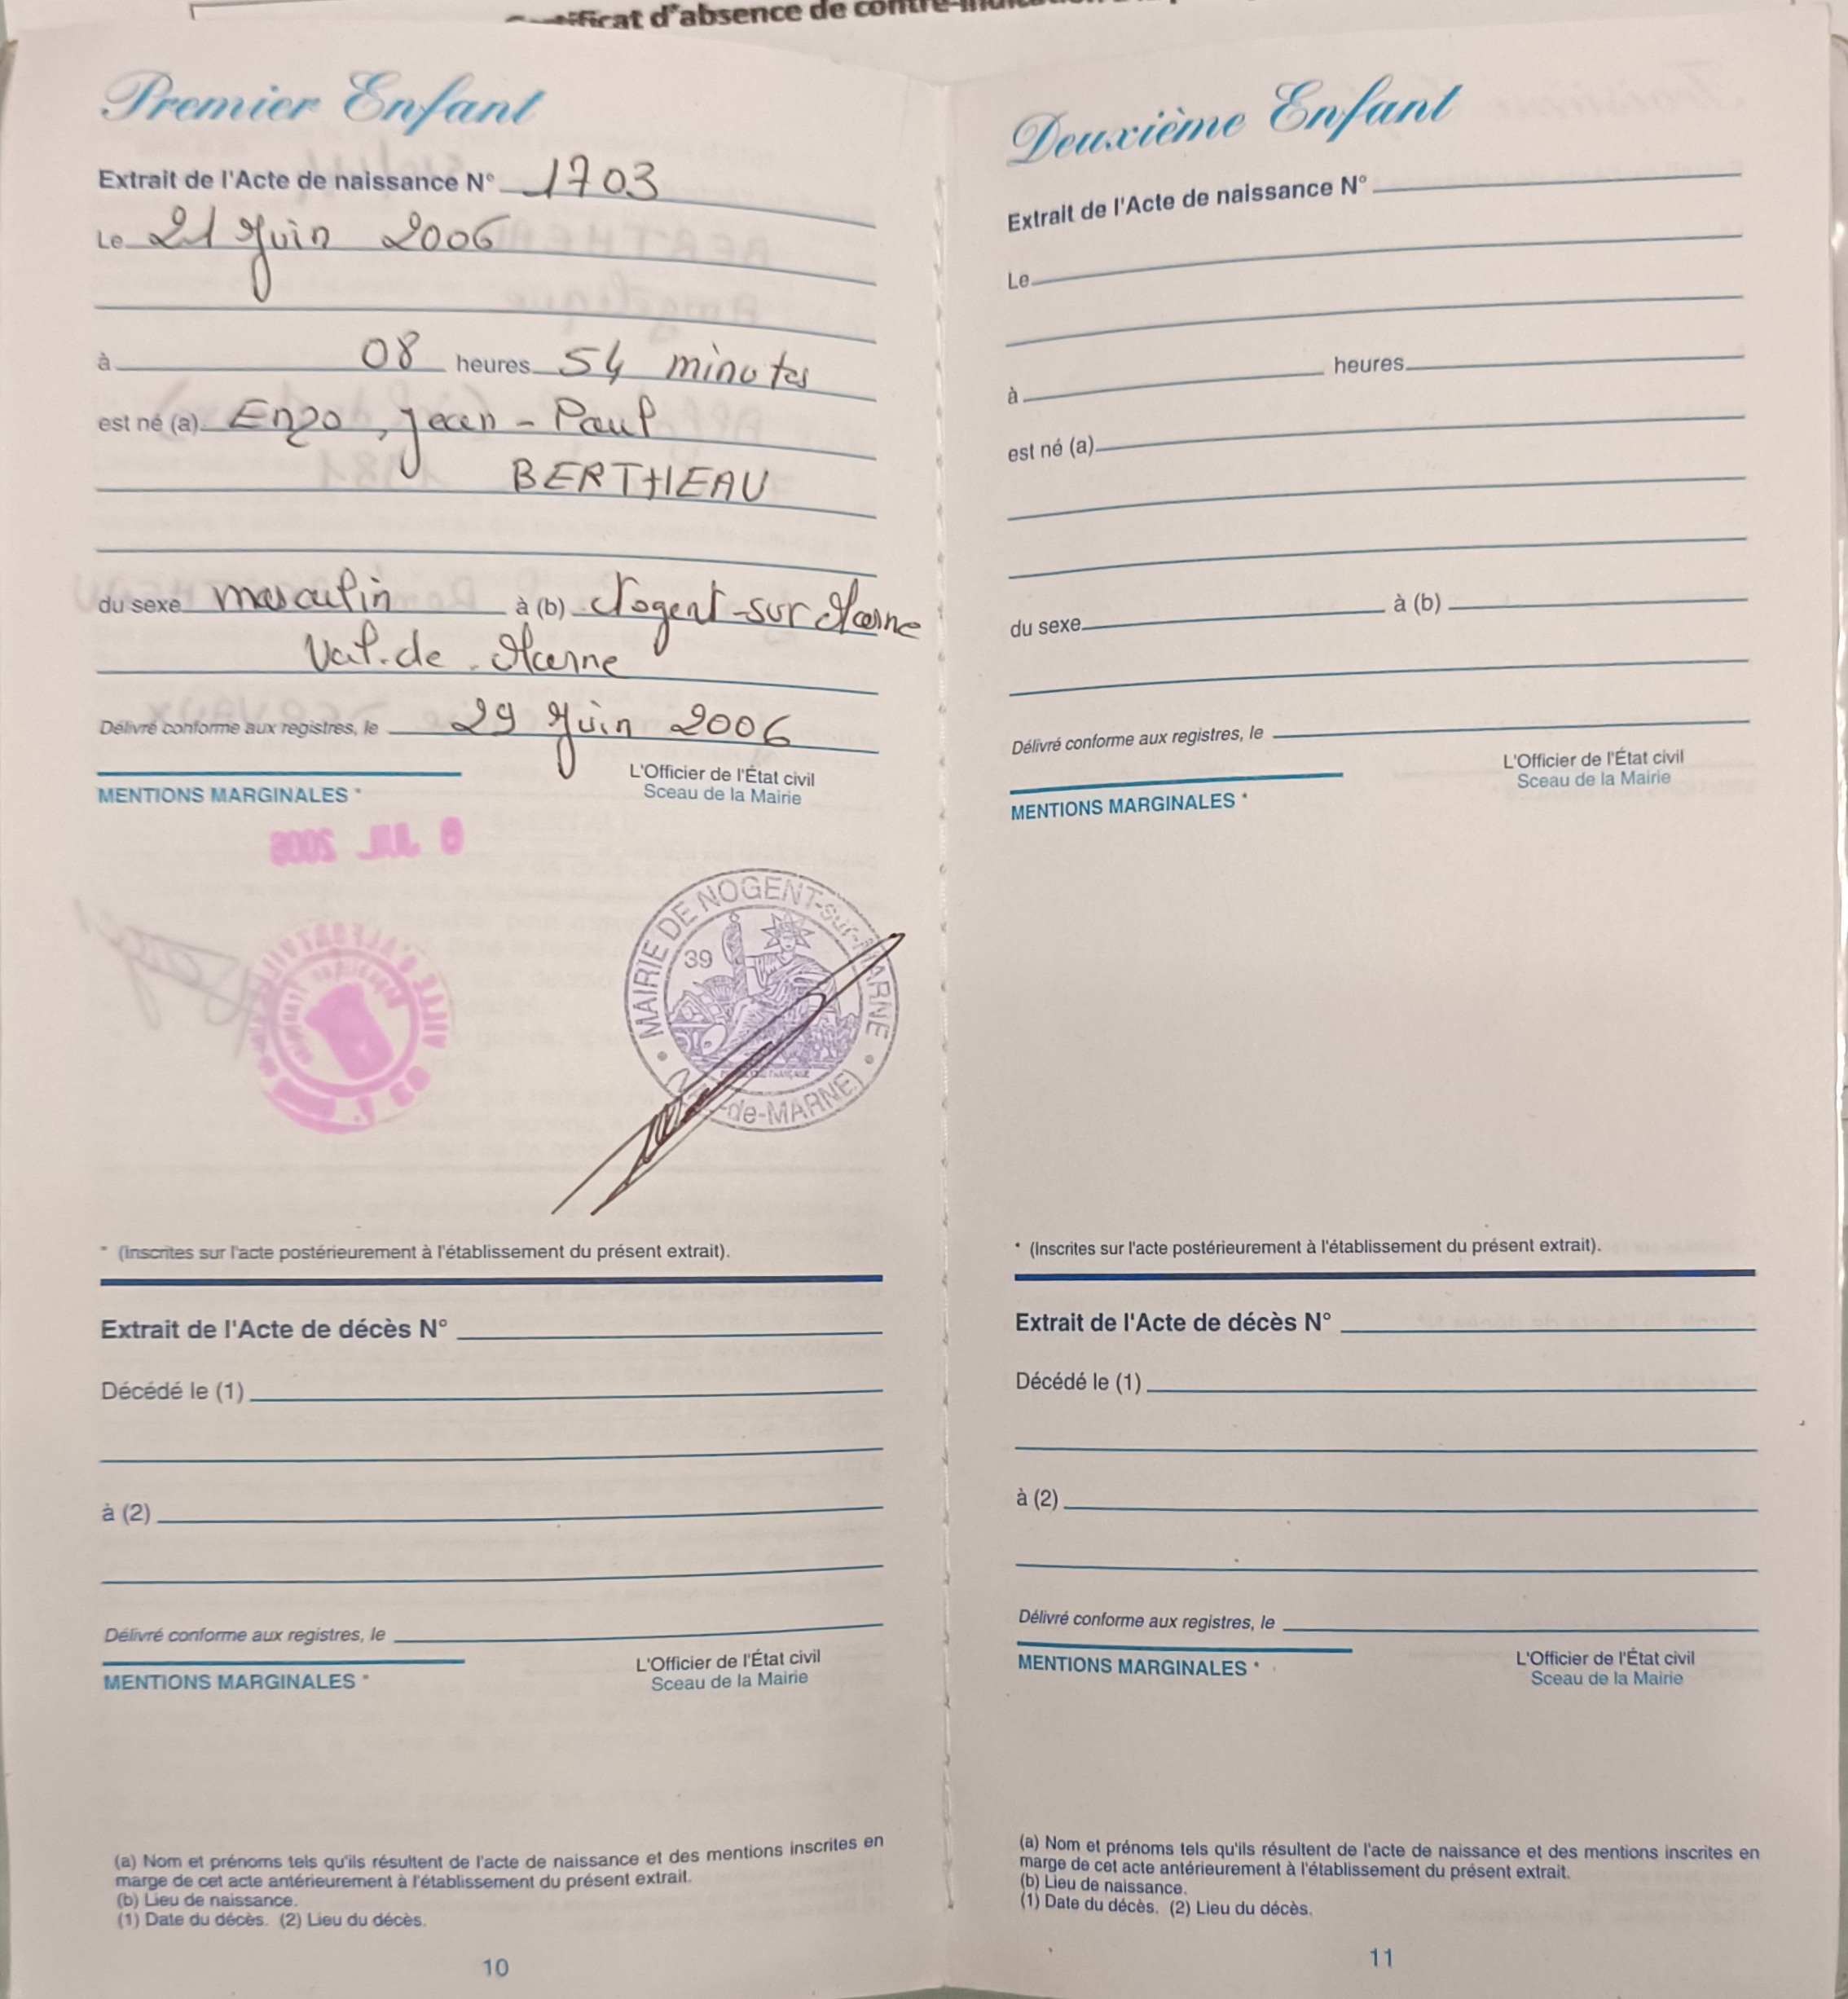 d'absence de contre-
Premier Enfant
Extrait de l'Acte de naissance N° 1703
Le 21 Juin 2006
à 08 heures 54 minutes
est né (a) Enzo, Jean-Paul
BERTHEAU
du sexe masculin à (b) Nogent-sur Marne
Val-de-Marne
Délivré conforme aux registres, le 29 Juin 2006
L'Officier de l'État civil
Sceau de la Mairie
MENTIONS MARGINALES *
6 JUL. 2006
MAIRIE DE NOGENT-sur-MARNE
39
-de-MARNE)
* (Inscrites sur l'acte postérieurement à l'établissement du présent extrait).
Extrait de l'Acte de décès N°
Décédé le (1)
à (2)
Délivré conforme aux registres, le
L'Officier de l'État civil
Sceau de la Mairie
MENTIONS MARGINALES *
(a) Nom et prénoms tels qu'ils résultent de l'acte de naissance et des mentions inscrites en
marge de cet acte antérieurement à l'établissement du présent extrait.
(b) Lieu de naissance.
(1) Date du décès. (2) Lieu du décès.
10
Deuxième Enfant
Extrait de l'Acte de naissance N°
Le
à heures
est né (a)
du sexe à (b)
Délivré conforme aux registres, le
L'Officier de l'État civil
Sceau de la Mairie
MENTIONS MARGINALES *
* (Inscrites sur l'acte postérieurement à l'établissement du présent extrait).
Extrait de l'Acte de décès N°
Décédé le (1)
à (2)
Délivré conforme aux registres, le
L'Officier de l'État civil
Sceau de la Mairie
MENTIONS MARGINALES *
(a) Nom et prénoms tels qu'ils résultent de l'acte de naissance et des mentions inscrites en
marge de cet acte antérieurement à l'établissement du présent extrait.
(b) Lieu de naissance.
(1) Date du décès. (2) Lieu du décès.
11